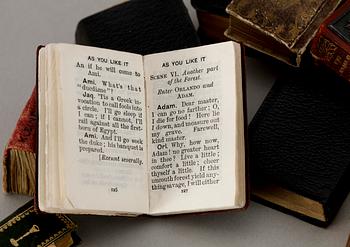 AS YOU LIKE IT
An if he will come to
Ami.
Ami. What's that
"ducdame?"
Jaq. 'Tis a Greek in-
vocation to call fools into
a circle. I'll go sleep if
I can; if I cannot, I'll
rail against all the first-
born of Egypt.
Ami. And I'll go seek
the duke; his banquet is
prepared.
[Exeunt severally.
126
AS YOU LIKE IT
SCENE VI. Another part
of the Forest.
Enter ORLANDO and
ADAM.
Adam. Dear master,
I can go no farther; O,
I die for food! Here lie
I down, and measure out
my grave. Farewell,
kind master.
Orl. Why, how now,
Adam! no greater heart
in thee? Live a little;
comfort a little; cheer
thyself a little. If this
uncouth forest yield any-
thing savage, I will either
127